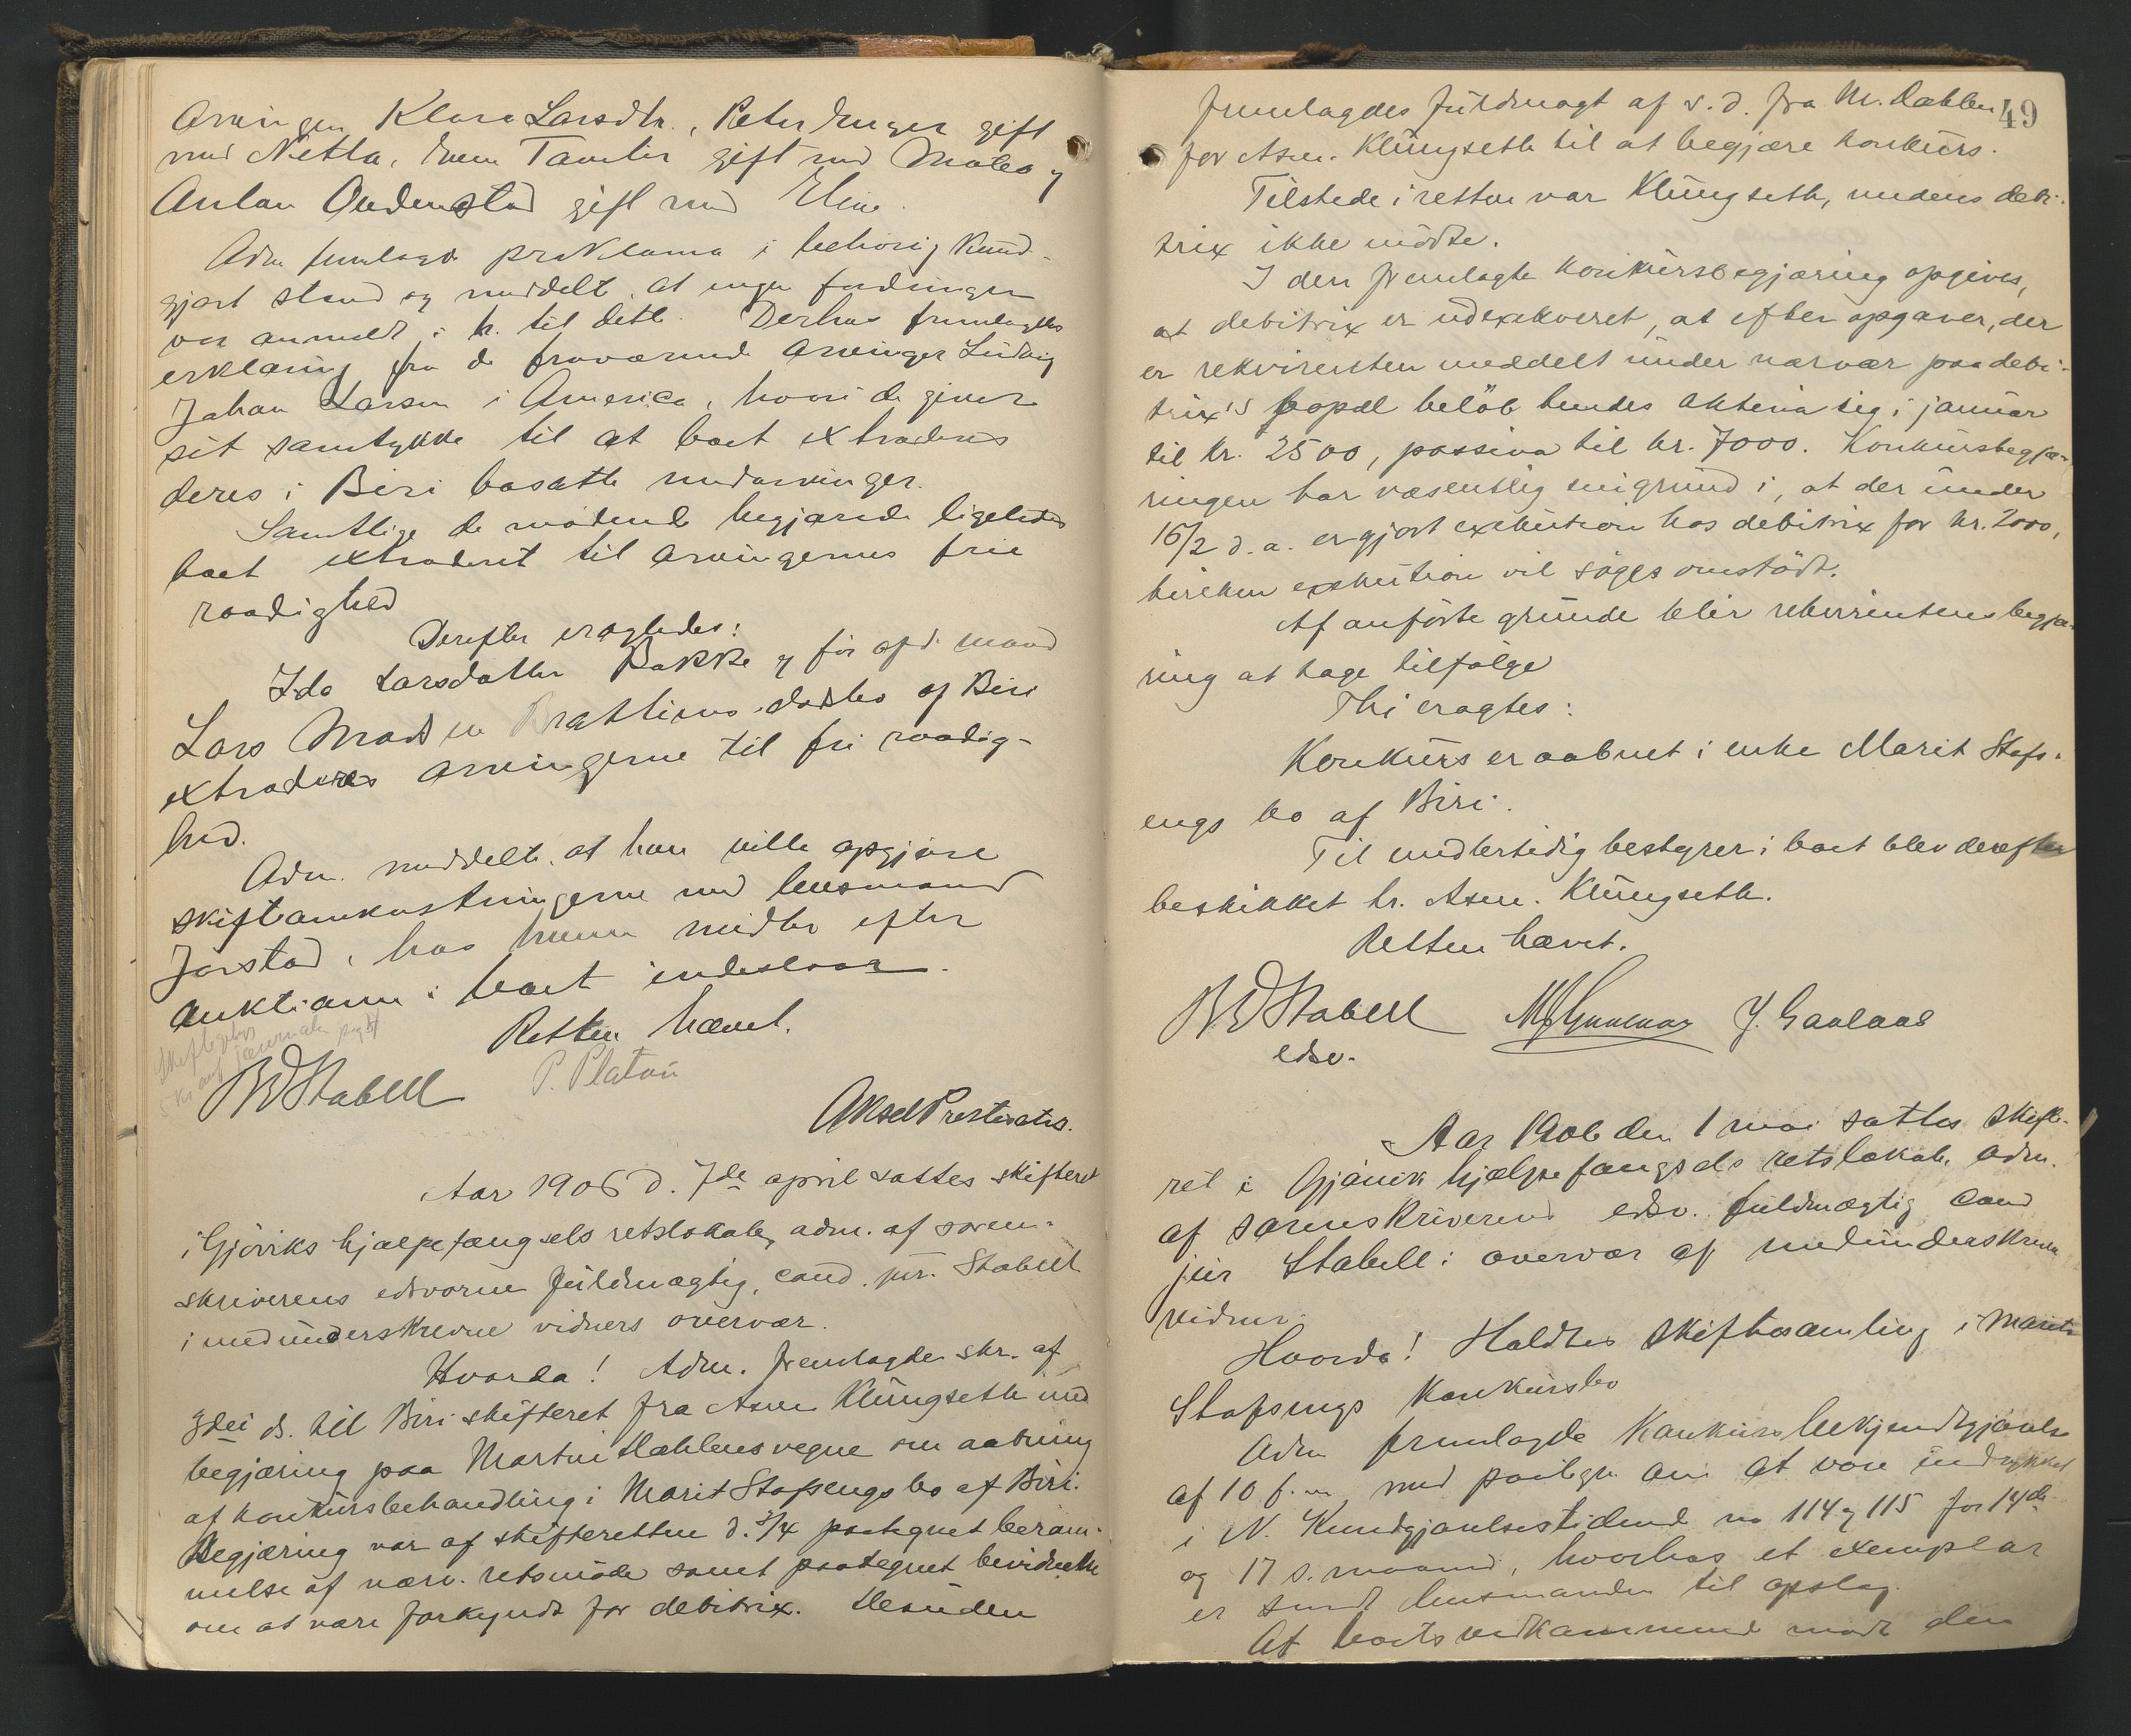 Arvingen Klara Larsdtr., Peter Unger gift
med Netta, Even Tamlin gift med Males og
Anton Oudenstad gift med Eline.
Adm fremlagde proklama i behörig kund-
gjort stand og meddelt, at ingen fordringer
var anmeldt i h. til dette. Derhos fremlagdes
erklæring fra de fraværende arvinger Ludvig
Johan Larsen i America, hvori de giver
sit samtykke til at boet extraderes
deres i Biri bosatte medarvinger.
Samtlige de mödende begjærede ligeledes
boet extraderet til arvingernes frie
raadighed
Derefter eragtedes:
Ida Larsdatter Bakke og før afd. mand
Lars Madsen Brattlien dödsbo af Biri
extraderes arvingerne til fri raadig-
hed.
Adm. meddelte, at han ville opgjøre
skifteomkostningerne med lensmand
Jørstad, hos hvem midler efter
auktionen i boet indestaar.
Retten hævet.
BW Stabell P. Platou
Aksel Prestesæter.
Aar 1906 d. 7de april sattes skifteret
i Gjöviks hjælpefængsels retslokale, adm. af soren-
skriverens edsvorne fuldmægtig, cand. jur. Stabell
i medunderskrevne vidners overvær.
Hvorda! Adm. fremlagde skr. af
3dei ds. til Biri skifteret fra Asm Klüngseth med
begjæring paa Martin Dæhlens vegne om aabning
af konkursbehandling i Marit Stafsengs bo af Biri.
Begjæring var af skifteretten d. 3/4 paategnet beram-
melse af nærv. retsmöde samt paategnet bevidnelse
om at være forkyndt for debitrix. Desuden
49
fremlagdes fuldmagt af s. d. fra M. Dæhlen
for Asm. Klüngseth til at begjære konkurs.
Tilstede i retten var Klüngseth, medens debi-
trix ikke mödte.
I den fremlagte konkursbegjæring opgives,
at debitrix er udexekveret, at efter opgaver, der
er rekvirenten meddelt under nærvær paa debi-
trix's bopæl belöb hendes aktiva sig i januar
til kr. 2500, passiva til kr. 7000. Konkursbegjæ-
ringen har væsentlig sin grund i, at der under
16/2 d. a. er gjort exekution hos debitrix for kr. 2000,
hvilken exekution vil söges omstödt.
Af anförte grunde blir rekvirentens begjæ-
ring at tage tilfölge
Thi eragtes:
Konkurs er aabnet i enke Marit Stafs-
engs bo af Biri.
Til midlertidig bestyrer i boet blev derefter
beskikket hr. Asm. Klüngseth.
Retten hævet.
BW Stabell J. Gaalaas
edsv.
Aar 1906 den 1 mai sattes skifte-
ret i Gjövik hjælpefængsels retslokale, adm.
af sorenskriverens edsv. fuldmægtig cand
jur Stabell i overvær af medunderskrevne
vidner.
Hvorda! Holdtes skiftesamling i Marit
Stafsengs konkursbo
Adm fremlagde Konkursbekjendtgjørelse
af 10 f. m. med paategn. om at være indrykket
i N. Kundgjørelsestidende no 114 og 115 for 14de
og 17 s. maaned, hvorhos et exemplar
er sendt lensmanden til opslag.
Af boets vedkommende mödte den